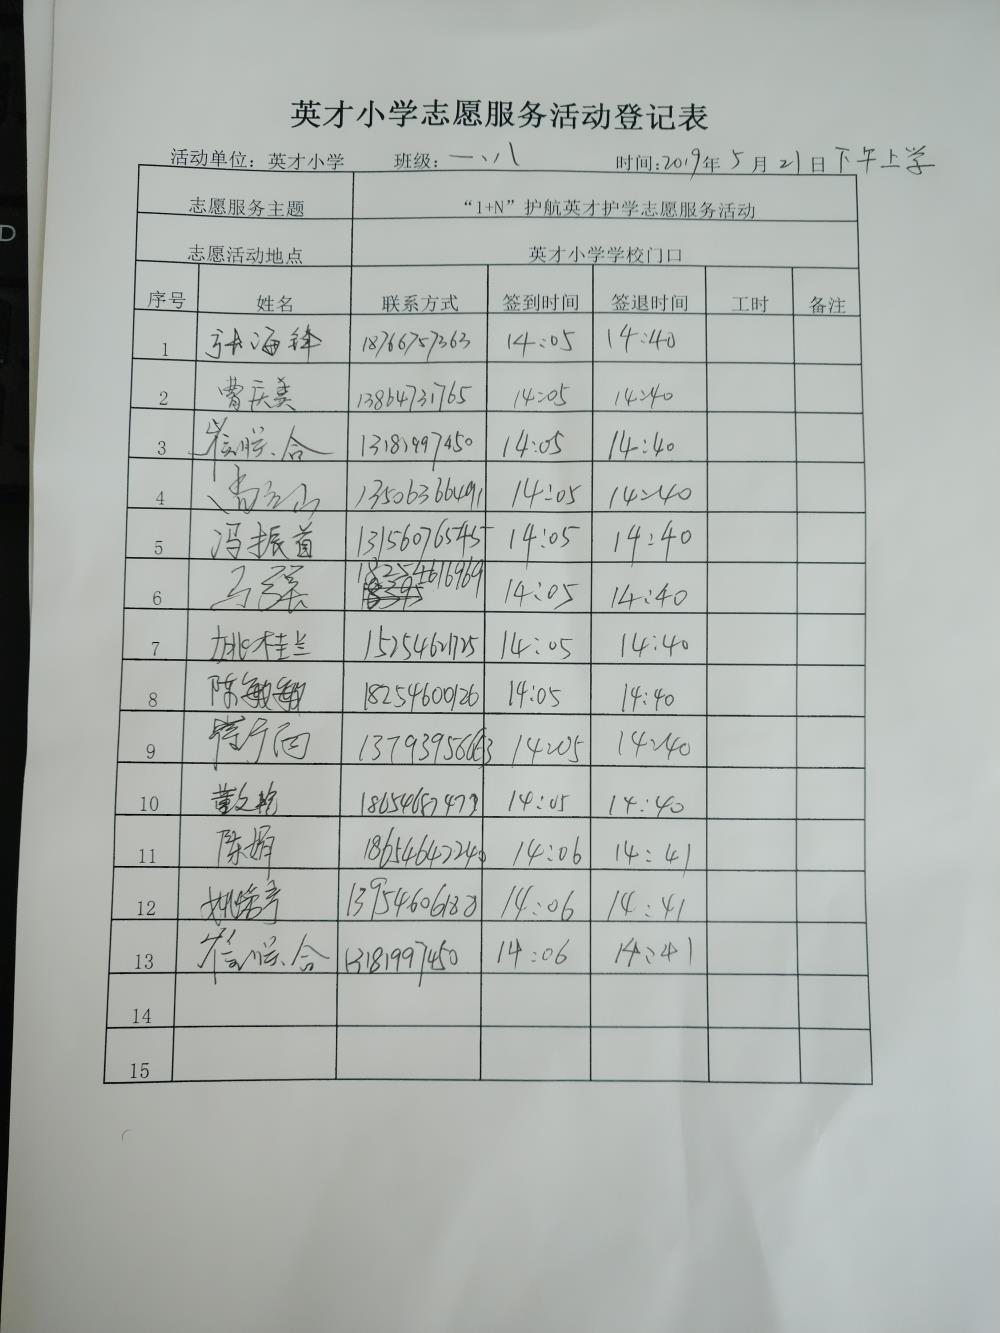 英才小学志愿服务活动登记表
活动单位：英才小学 班级：一、八 时间：2019年5月21日下午上学
志愿服务主题 “1+N”护航英才护学志愿服务活动
志愿活动地点 英才小学学校门口
序号 姓名 联系方式 签到时间 签退时间 工时 备注
1 张海锋 18766757363 14:05 14:40
2 曹庆美 13864731765 14:05 14:40
3 崔联合 13181997450 14:05 14:40
4 13506366491 14:05 14:40
5 冯振首 13156076545 14:05 14:40
6 马强 18254616969 14:05 14:40
7 姚桂兰 15254621725 14:05 14:40
8 陈敏敏 18254600126 14:05 14:40
9 14:05 14:40
10 董文艳 18654687473 14:05 14:40
11 陈娟 18654647240 14:06 14:41
12 13954606188 14:06 14:41
13 崔联合 13181997450 14:06 14:41
14
15